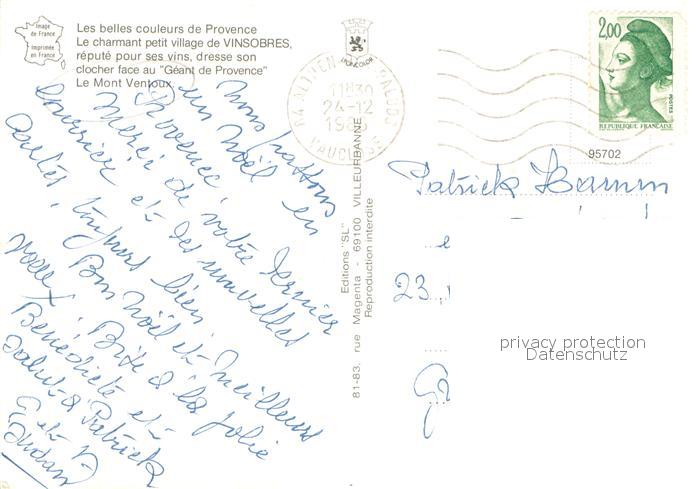 Image
de France
Imprimée
en France
Les belles couleurs de Provence
Le charmant petit village de VINSOBRES,
réputé pour ses vins, dresse son
clocher face au "Géant de Provence"
Le Mont Ventoux
LYONCOLOR
84 ALTHEN PALUDS
11H30
24-12
1985
VAUCLUSE
2,00
POSTES
REPUBLIQUE FRANÇAISE
95702
Nous passons
un Noël en
Provence,
Merci de votre dernier
courrier et des nouvelles
toujours bien,
Bon Noël et meilleurs
voeux, Bise à la jolie
Bénédicte et
salut à Patrick
Editions "SL"
81-83, rue Magenta - 69100 VILLEURBANNE
Reproduction interdite
Patrick
...e
23
privacy protection
Datenschutz